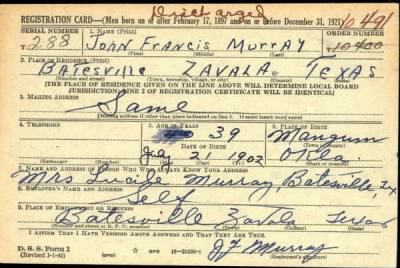 Discharged
REGISTRATION CARD—(Men born on or after February 17, 1897 and on or before December 31, 1921)
10,491
SERIAL NUMBER 1. NAME (Print) ORDER NUMBER
288 John Francis Murray 10400
2. PLACE OF RESIDENCE (Print)
Batesville Zavala Texas
(Number and street) (Town, township, village, or city) (County) (State)
[THE PLACE OF RESIDENCE GIVEN ON THE LINE ABOVE WILL DETERMINE LOCAL BOARD
JURISDICTION; LINE 2 OF REGISTRATION CERTIFICATE WILL BE IDENTICAL]
3. MAILING ADDRESS
Same
[Mailing address if other than place indicated on line 2. If same insert word same]
4. TELEPHONE 5. AGE IN YEARS 6. PLACE OF BIRTH
39 Mangum
DATE OF BIRTH (Town or county)
July 21 1902 Okla.
(Exchange) (Number) (Mo.) (Day) (Yr.) (State or country)
7. NAME AND ADDRESS OF PERSON WHO WILL ALWAYS KNOW YOUR ADDRESS
Mrs Lucile Murray, Batesville, Tx
8. EMPLOYER'S NAME AND ADDRESS
Self
9. PLACE OF EMPLOYMENT OR BUSINESS
Batesville Zavala Texas
(Number and street or R. F. D. number) (Town) (County) (State)
I AFFIRM THAT I HAVE VERIFIED ABOVE ANSWERS AND THAT THEY ARE TRUE.
D. S. S. Form 1
(Revised 1-1-42) GPO J F Murray
(Registrant's signature)